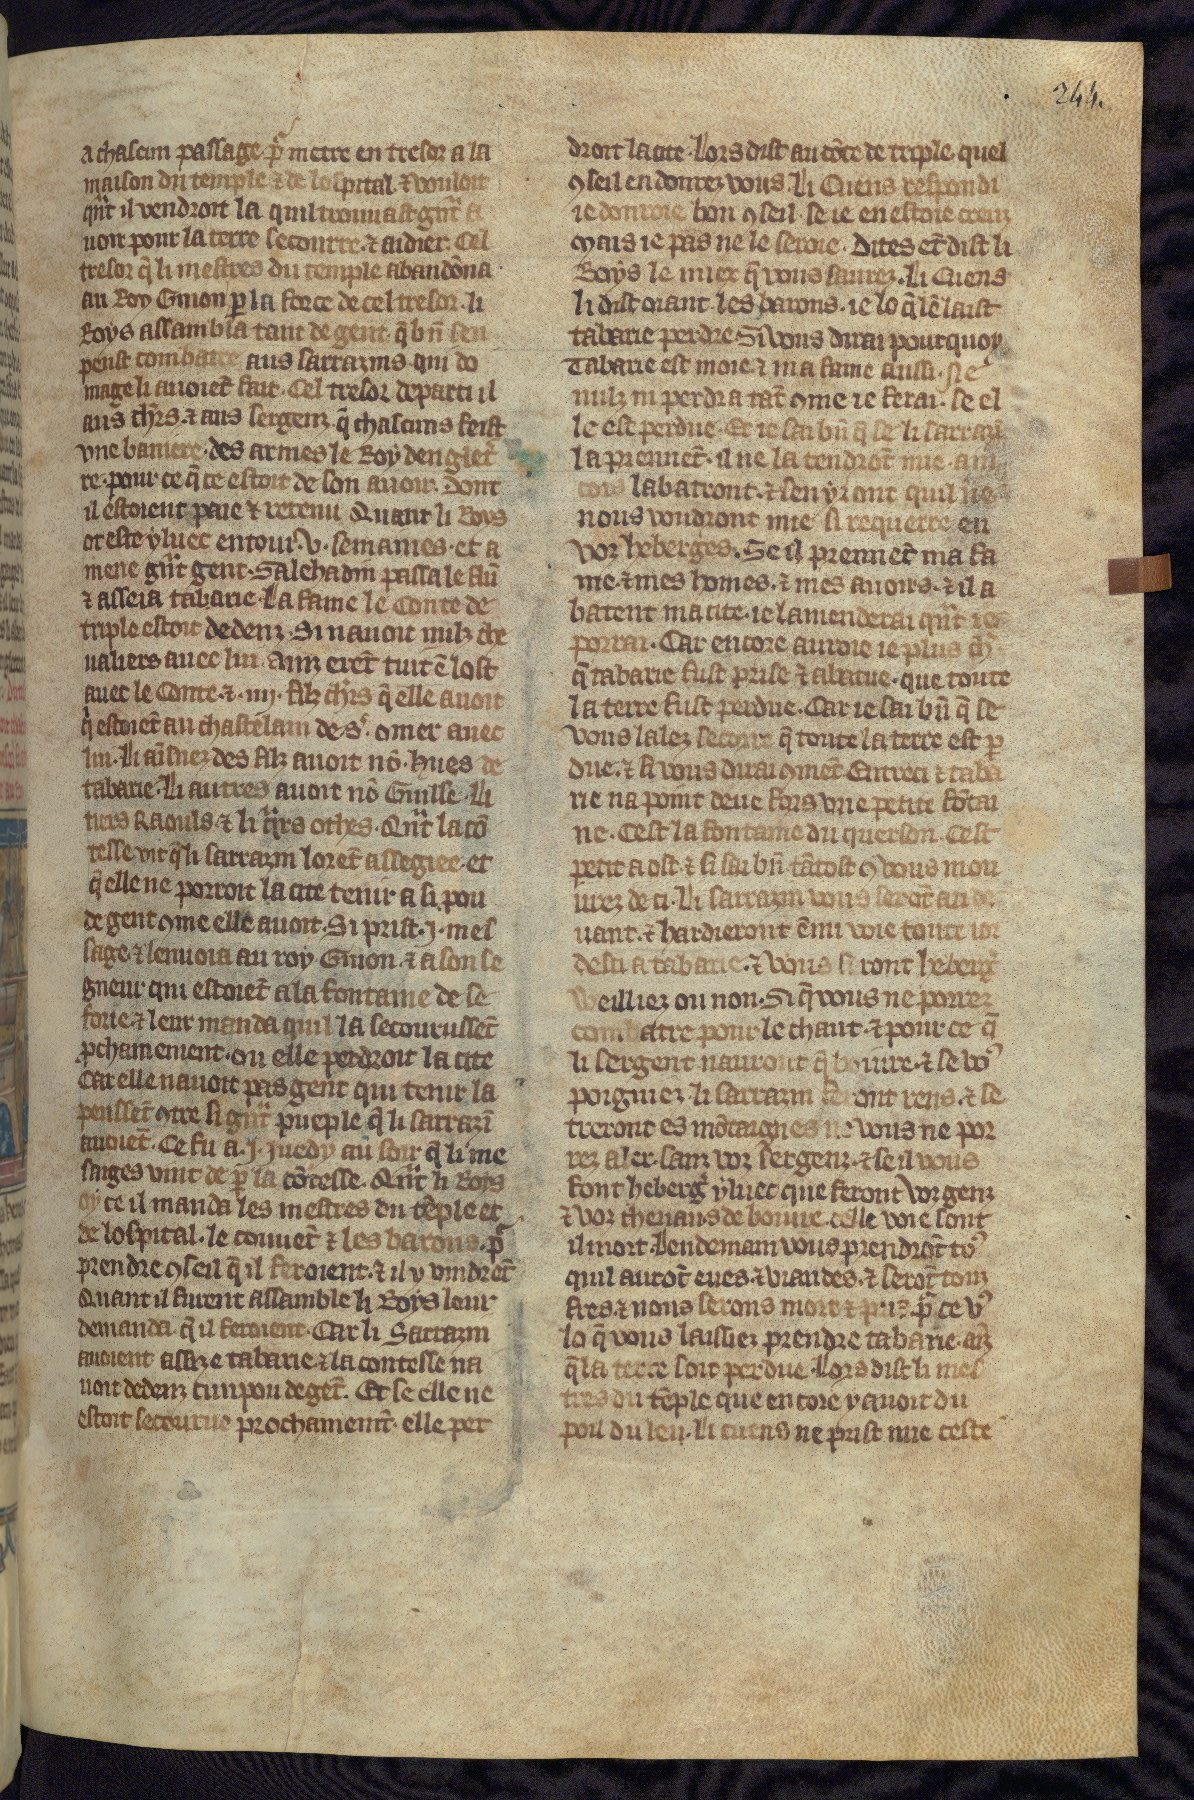 244.
a chascun passage. pͬ metre en tresor a la
maison du temple ⁊ de lospital. ⁊ vouloit
qn̄t il vendroit la quil trouuast gn̄t a
uoir pour la terre secourre. ⁊ aidier. Cel
tresor q̄ li mestres du temple abandōna
au Roy Guion ꝑ la force de cel tresor. li
Roys assambla tant de gent. q̄ bn̄ sen
peust combatre aus sarrazins. qui do
mage li auoiēt fait. Cel tresor departi il
aus chr̄s. ⁊ aus sergenz. q̄ chascuns feist
vne baniere. des armes le Roy dengleť
re. pour ce q̄ ce estoit de son auoir. Dont
il estoient paie ⁊ retenu Quant li Roys
ot este yluec entour. v. semaines. et a
mene gn̄t gent. Salehadin passa le flū
⁊ asseia tabarie. La fame le Conte de
triple estoit dedenz. Si nauoit nulz che
ualiers auec lui. Ainz erēt tuit ē lost
auec le Conte. ⁊ .iiij. filz chr̄s q̄ elle auoit
q̄ estoiēt au chastelain de Sͭ. omer auec
lui. Li ainsnez des filz auoit nō. hues de
tabarie. Li autres auoit nō Guilse. Li
tiers Raouls. ⁊ li q̄rs othes. Qn̄t la cō
tesse vit q̄ li sarrazin lorēt assegiee. et
q̄ elle ne porroit la cite tenir a si pou
de gent ꝯme elle auoit. Si prist. j. mes
sage. ⁊ lenuoia au roy Guion. ⁊ a son se
gneur qui estoiēt a la fontaine de se
forie. ⁊ leur manda quil la secourussēt
ꝓchainement. ou elle perdroit la cite
Car elle nauoit pas gent qui tenir la
peussēt ꝯtre si gn̄t pueple q̄ li sarrazī
auoiēt. Ce fu a. j. juedy au soir q̄ li me
sages vint de ꝑ la cōtesse. Qn̄t li Roys
oy ce il manda les mestres du tēple et
de lospital. le couuēt ⁊ les barons. pͬ
prendre ꝯseil q̄ il feroient. ⁊ il y vindrēt
Quant il furent assamble li Roys leur
demanda. q̄ il feroient. Car li Sarrazin
auoient assize tabarie. ⁊ la contesse na
uoit dedenz cun pou de gēt. Et se elle ne
estoit secourue prochainemēt. elle per
droit la cite. Lors dist au cōte de triple. quel
ꝯseil en donrez vous. Li Cuens respondi
ie donroie bon ꝯseil. se ie en estoie creuz
Mais ie pas ne le seroie. Dites cē dist li
Roys le miex q̄ vous saurez. Li Cuens
li dist oiant les barons. ie lo q̄ lē laist
tabarie perdre. Si vous dirai pourquoy
Tabarie est moie. ⁊ ma fame aussi. ne
nulz ni perdra tāt ꝯme ie ferai. se el
le est perdue. Et ie sai bn̄ q̄ se li sarrazī
la prennēt. il ne la tendrōt mie. ain
cois labatront. ⁊ sen yront quil ne
nous voudront mie si requerre en
voz heberges. Se il prennēt ma fa
me. ⁊ mes homes. ⁊ mes auoirs. ⁊ il a
batent ma cite. ie lamenderai qn̄t ie
porrai. Car encore auroie ie plus ch̄
q̄ tabarie fust prise ⁊ abatue. que toute
la terre fust perdue. Car ie sai bn̄ q̄ se
vous lalez secorre q̄ toute la terre est ꝑ
due. ⁊ si vous dirai ꝯmēt. Entreci ⁊ taba
rie na point deue fors vne petite fōtai
ne. Cest la fontaine du querson. Cest
petit a ost. ⁊ si sai bn̄ tātost ꝯ vous mou
urez de ci. Li sarrazin vous serōt au de
uant. ⁊ hardieront ēmi voie toute ior
desci a tabarie. ⁊ vous feront heberg̉
Weilliez ou non. Si q̄ vous ne porrez
combatre pour le chaut. ⁊ pour ce q̄
li sergent nauront q̄ boiure. ⁊ se voꝰ
poigniez li sarrazin feront rens. ⁊ se
treront es mōtaignes ne vous ne por
rez aler. sanz voz sergenz. ⁊ se il vous
font heberg̉ yluec que feront voz genz
⁊ voz cheuaus de boiure. celle voie sont
il mort. Lendemain vous prendrōt toꝰ
quil aurōt eues. ⁊ viandes. ⁊ serōt touz
fres. ⁊ nous serons mort ⁊ pris. pͬ ce vꝰ
lo q̄ vous laissiez prendre tabarie. aīz
q̄ la terre soit perdue. Lors dist li mes
tres du tēple que encore y auoit du
poil du leu. Li cuens ne prist mie ceste